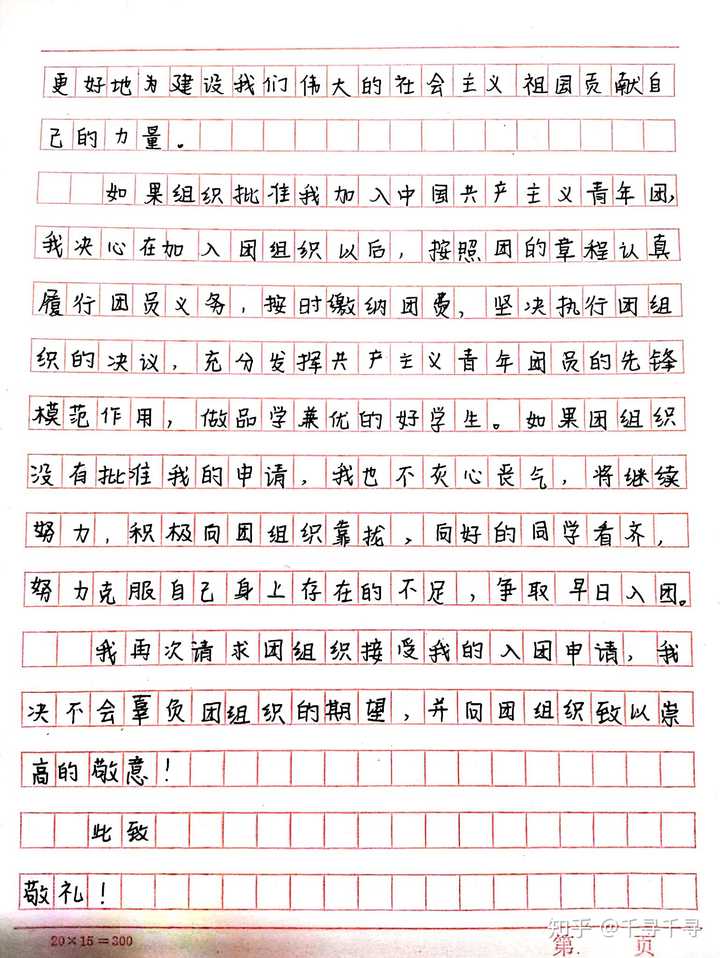 更好地为建设我们伟大的社会主义祖国贡献自
己的力量。
如果组织批准我加入中国共产主义青年团,
我决心在加入团组织以后，按照团的章程认真
履行团员义务，按时缴纳团费，坚决执行团组
织的决议，充分发挥共产主义青年团员的先锋
模范作用，做品学兼优的好学生。如果团组织
没有批准我的申请，我也不灰心丧气，将继续
努力，积极向团组织靠拢、向好的同学看齐，
努力克服自己身上存在的不足，争取早日入团。
我再次请求团组织接受我的入团申请，我
决不会辜负团组织的期望，并向团组织致以崇
高的敬意！
此致
敬礼！
20×15=300
第. 页
知乎 @千寻千寻